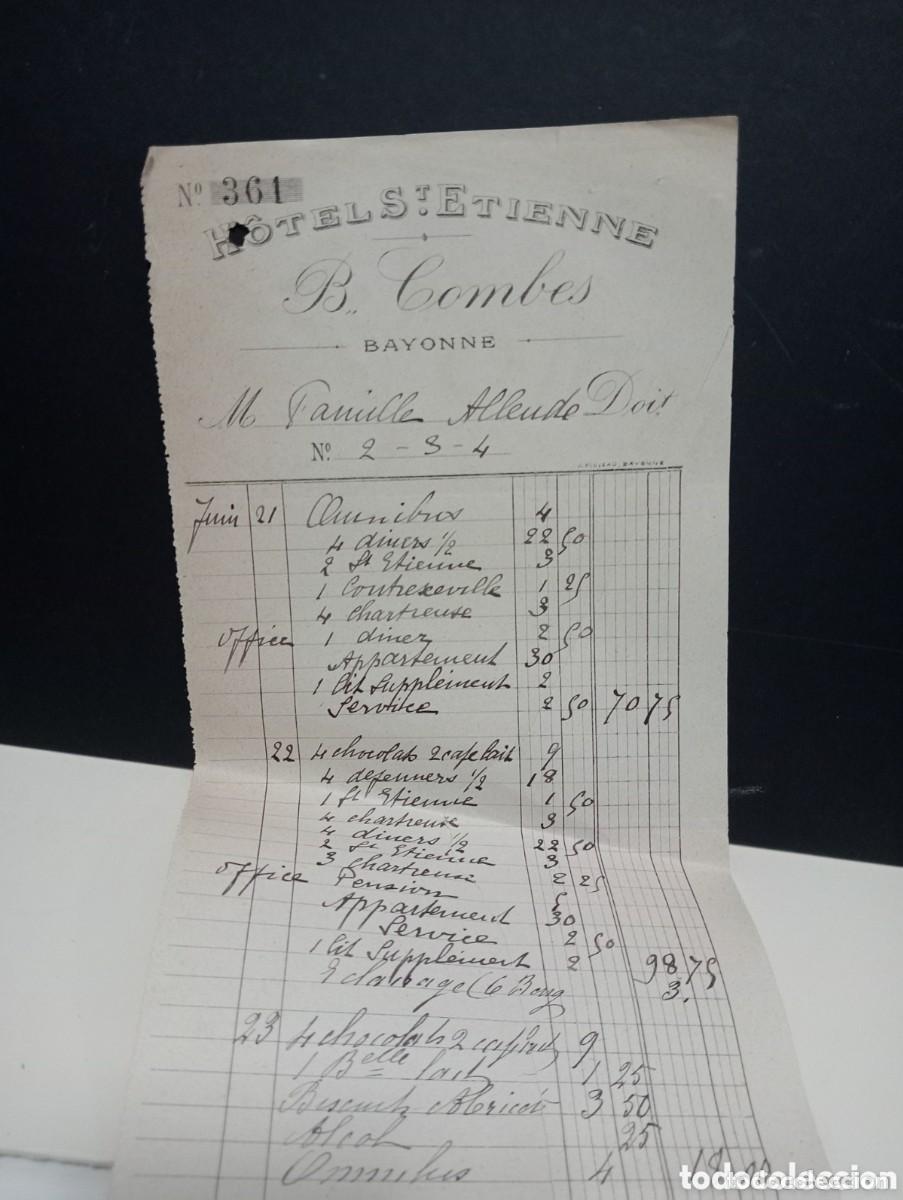 Nº 361
HÔTEL ST. ETIENNE
B. Combes
BAYONNE
M Famille Allende Doit
Nº 2 - 3 - 4
BAYONNE
Juin 21 Omnibus 4
4 diners 1/2 22 50
2 St Etienne 3
1 Contrexeville 1 25
4 chartreuse 3
office 1 diner 2 50
Appartement 30
1 lit Supplement 2
Service 2 50 70 75
22 4 chocolats 2 cafe lait 9
4 dejenners 1/2 18
1 St Etienne 1 50
4 chartreuse 3
4 diners 1/2 22 50
2 St Etienne 3
3 Chartreuse 2 25
office Pension 5
Appartement 30
Service 2 50
1 lit Supplement 2 98 75
Eclairage (6 Boug 3.
23 4 chocolats 2 caf lait 9
1 Belle lait 1 25
Biscuits Abricots 3 50
Alcol 25
Omnibus 4 18
todocoleccion